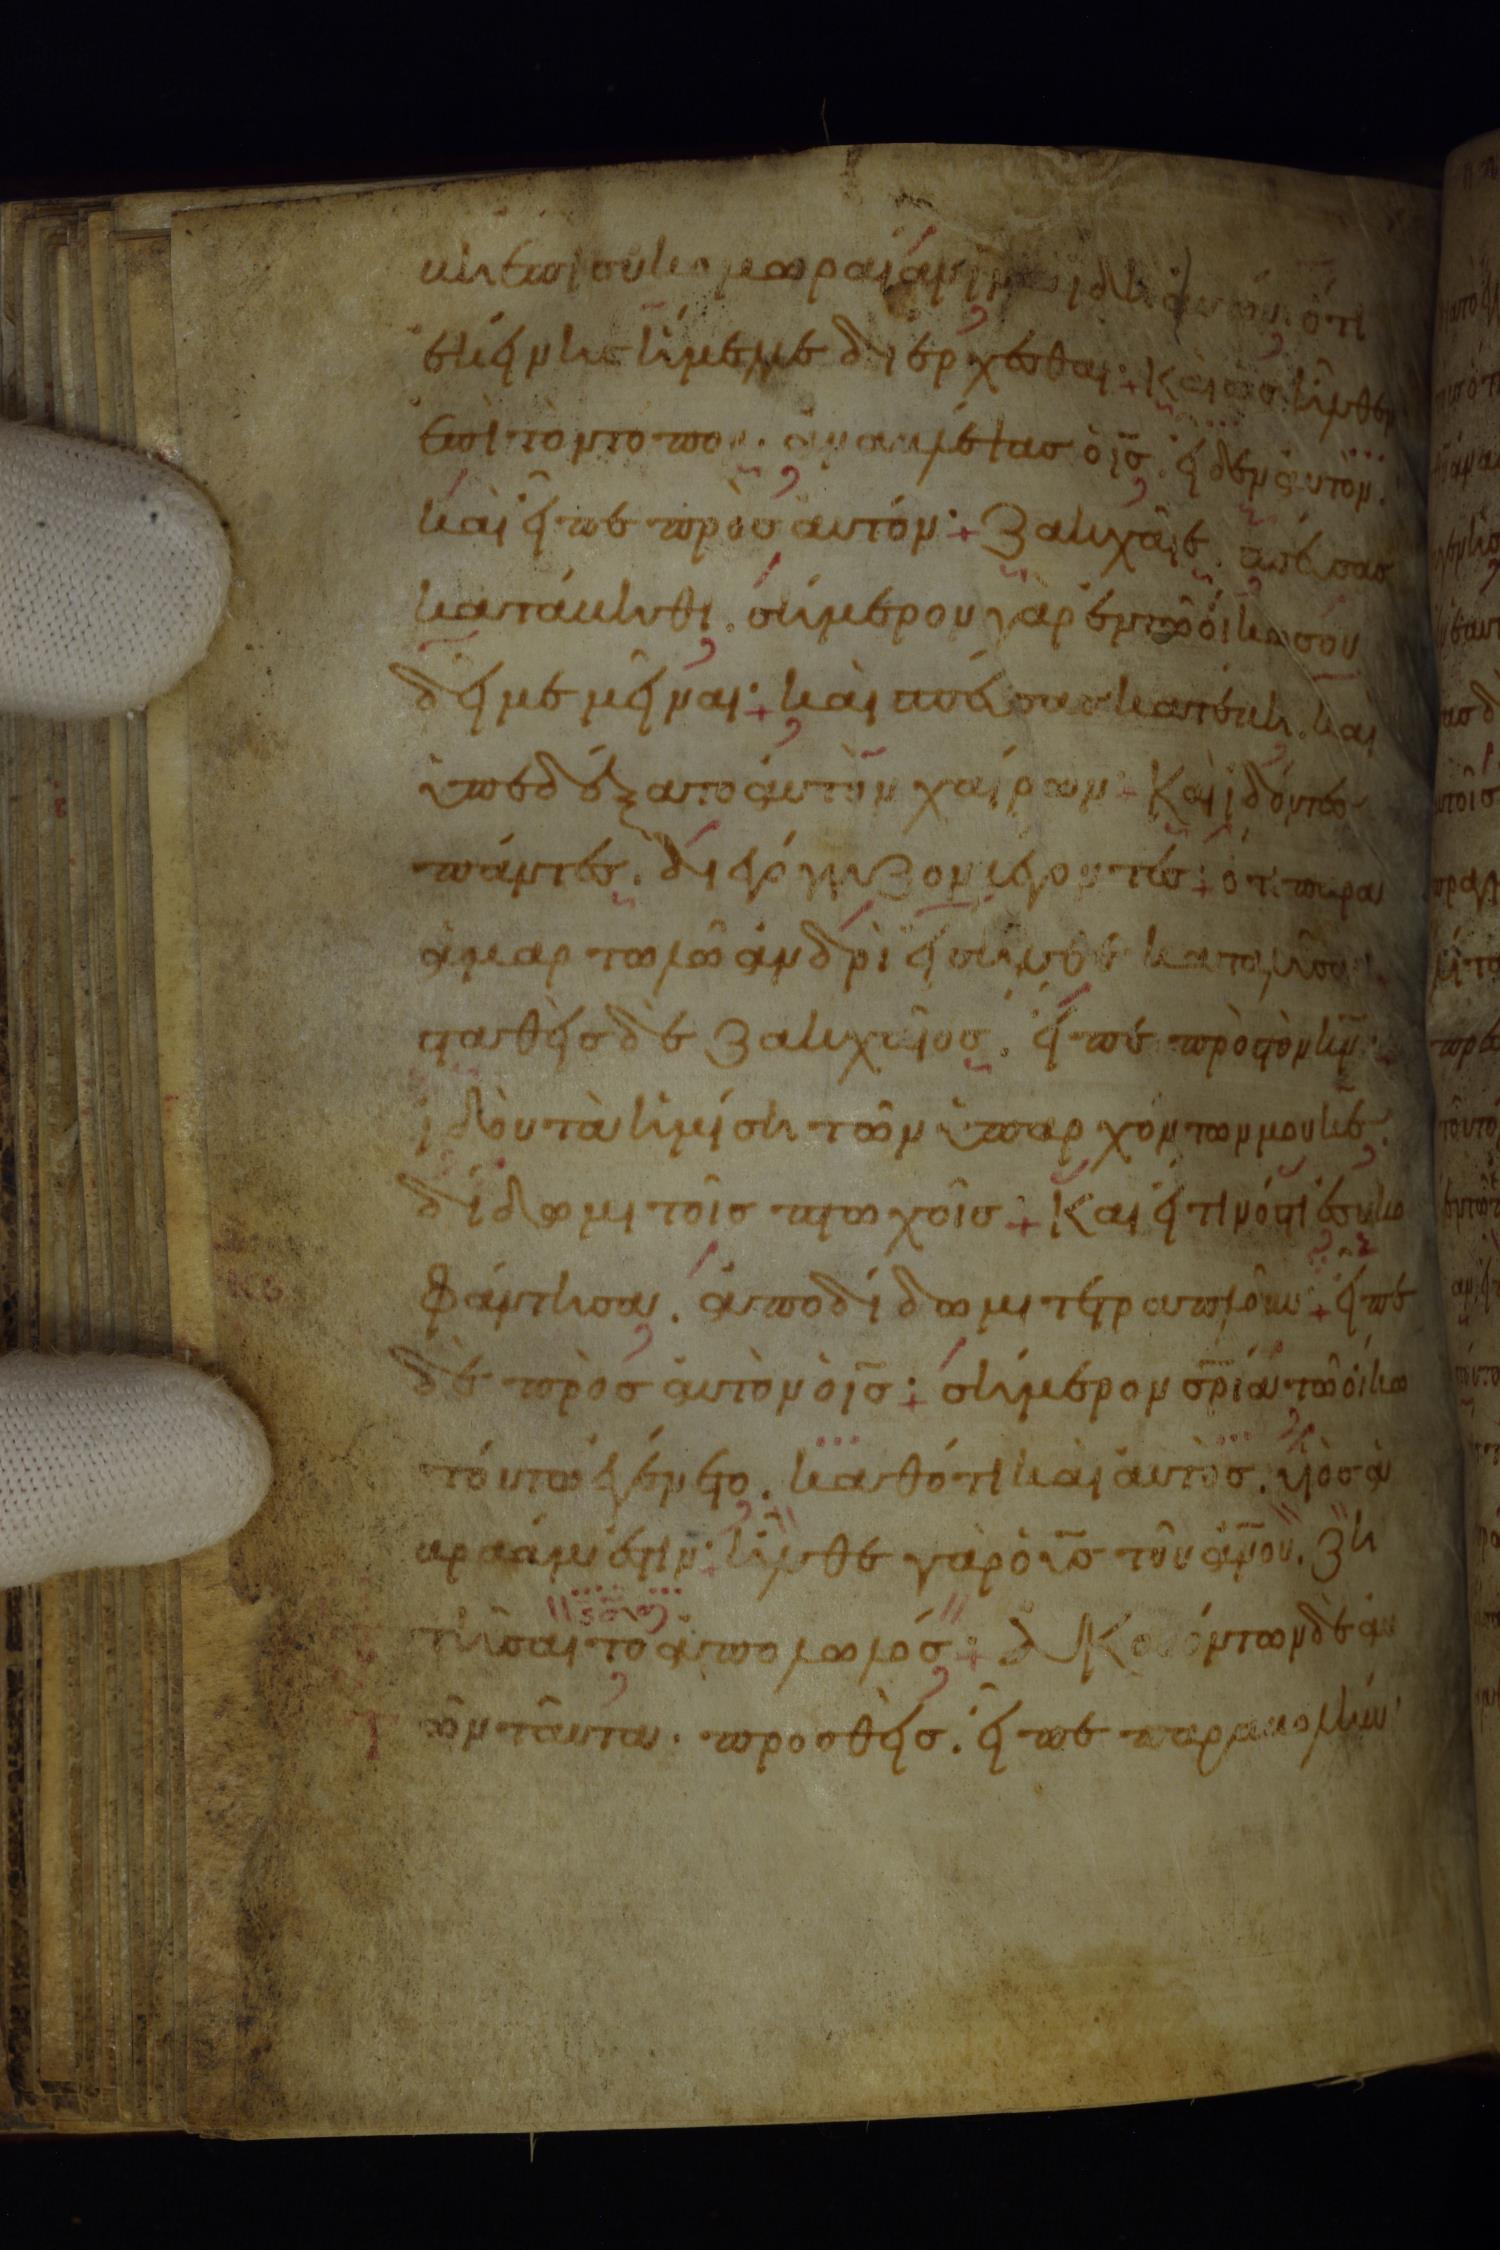 βη επι συκομωραιαν ινα ιδη αυτόν. ότι
εκείνης ήμελλε διέρχεσθαι + Και ως ήλθεν
επι τὸν τόπον. αναβλέψας ὁ ις̅. είδεν αυτὸν.
και εἶπε πρὸς αυτόν + Ζακχαῖε. σπεύσας
κατάβηθι. σήμερον γὰρ εν τῶ οίκω σου
δεῖ με μεῖναι + και σπεύσας κατέβη. και
ὑπεδέξατο αυτὸν χαίρων + Και ιδόντες
πάντες. διεγόγγυζον λέγοντες + ότι παρα
ἁμαρτωλῶ ανδρὶ εισῆλθε καταλῦσαι
σταθεὶς δὲ Ζακχαῖος. εἶπε πρὸς τὸν κν̅.
ιδοὺ τὰ ημίση τῶν ὑπαρχόντων μου κε̅.
δίδωμι τοῖς πτωχοῖς + Και εί τινός τι εσυκο
φάντησα. αποδίδωμι τετραπλοῦν + εἶπε
δὲ πρὸς αυτὸν ὁ ις̅ + σήμερον σρ̅ία τῶ οίκω
τούτω εγένετο. καθότι και αυτὸς. υιὸς ἀ
βραάμ εστιν + ῆλθε γὰρ ὁ υς̅ τοῦ αν̅ου. ζη
τῆσαι το απολωλός + Ακουόντων δὲ αυ
τῶν ταῦτα. προσθεὶς. εἶπε παραβολήν